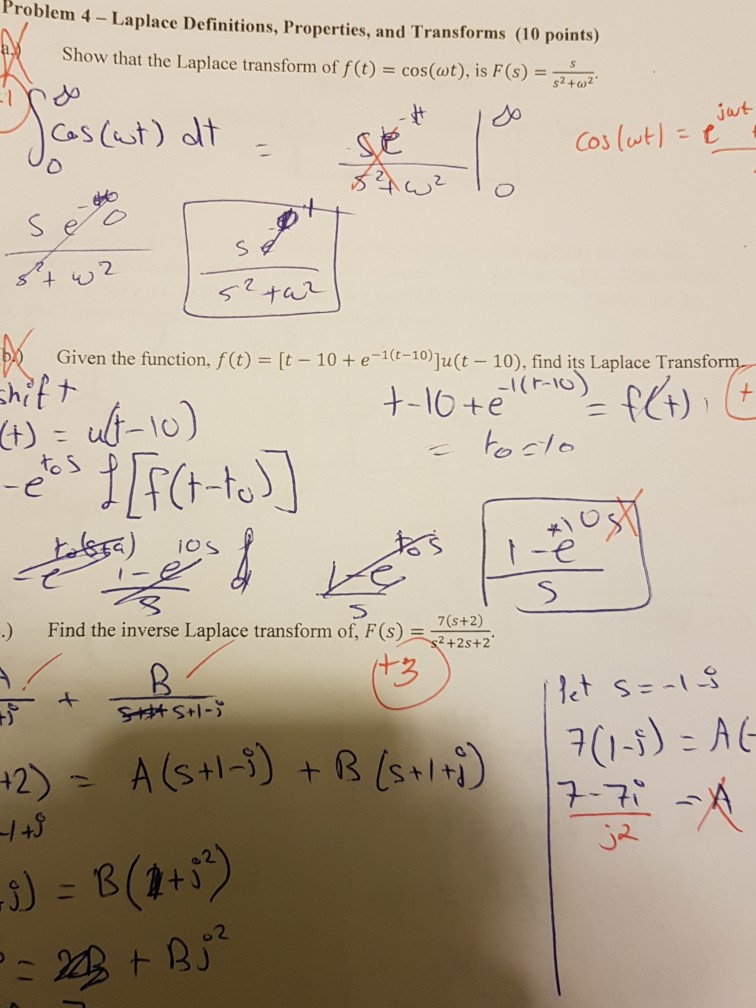 Problem 4 – Laplace Definitions, Properties, and Transforms (10 points)
a.) Show that the Laplace transform of f(t) = cos(ωt), is F(s) = s/(s²+ω²).
-1
∫₀^∞ cos(ωt) dt = se^-t/(s²+ω²) |₀^∞
cos(ωt) = e^jωt
s e^-∞/(s²+ω²)
s e/(s²+ω²)
b.) Given the function, f(t) = [t − 10 + e^−1(t−10)]u(t − 10), find its Laplace Transform
shift
t-10+e^-1(t-10) = f(t),
(t) = u(t-10)
= t₀=10
-e^t₀s ℒ[f(t-t₀)]
1-e^10s/s
1-e^t₀s/s
1-e^10s/s
.) Find the inverse Laplace transform of, F(s) = 7(s+2)/(s²+2s+2).
+3
A/+j + B/s+1-j
let s=-1-j
+2) = A(s+1-j) + B(s+1+j)
7(1-j) = A(-
-1+j
7-7j/j2 = A
j) = B(1+j²)
= 2B + Bj²